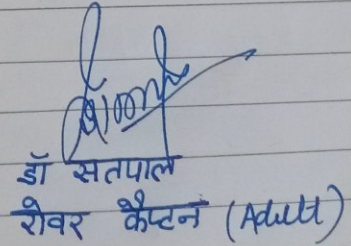 डॉ सतपाल
रोवर कैप्टन (Adult)